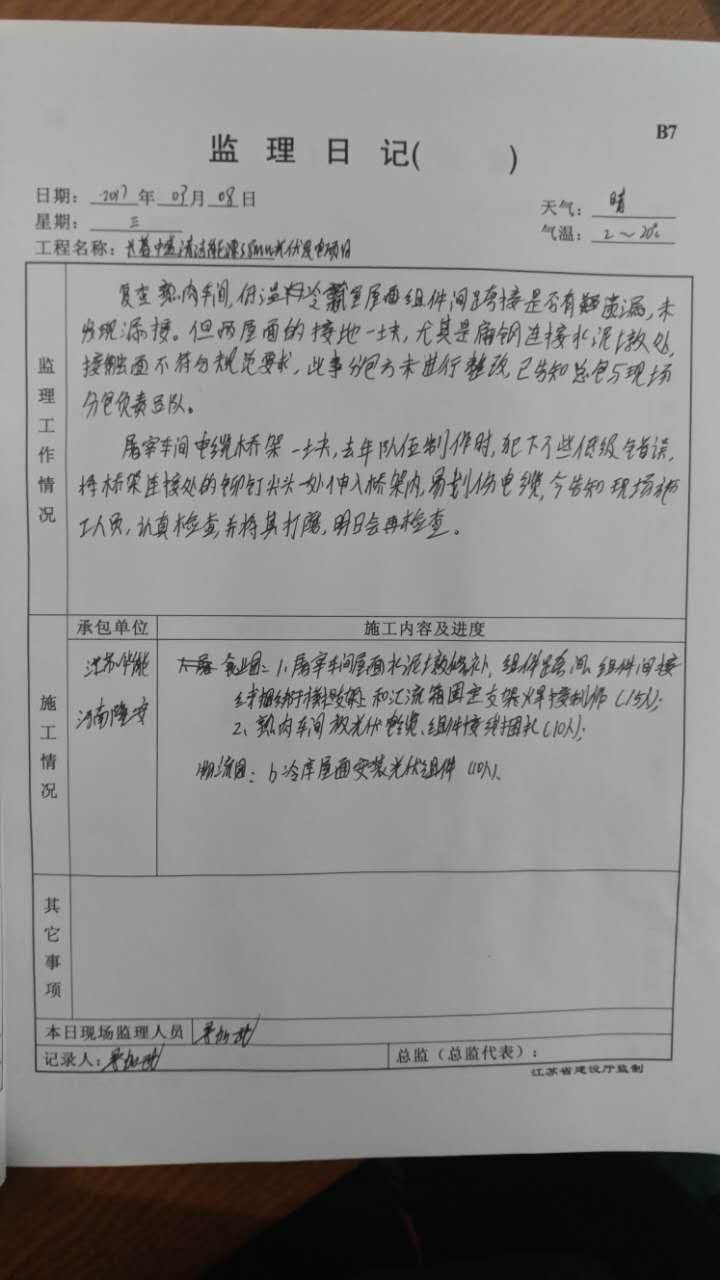 B7
监 理 日 记( )
日期: 2017 年 03 月 08 日
天气: 晴
星期: 三
气温: 2～20℃
工程名称: 清洁能源 光伏发电项目
监理工作情况
复查熟肉车间,低温 冷 屋面组件间跨接是否有 遗漏,未
发现漏接。但两屋面的接地一块,尤其是扁钢连接水泥墩处,
接触面不符合规范要求,此事分包方未进行整改,已告知总包与现场
分包负责 队。
屠宰车间电缆桥架一块,去年队伍制作时,犯下不些低级错误,
将桥架连接处的铆钉尖头一处伸入桥架内,易划伤电缆,今告知现场施
工人员,认真检查,并将其打磨,明日会再检查。
施工情况
承包单位
施工内容及进度
江苏华能
食业园: 1、屠宰车间屋面水泥墩修补、组件跨间、组件间接
线捆绑于横梁支架上和汇流箱固定支架焊接制作(15人);
河南隆安
2、熟肉车间放光伏电缆、组件接线捆扎(10人);
物流园: 冷库屋面安装光伏组件(10人)、
其它事项
本日现场监理人员
记录人:
总监（总监代表）:
江苏省建设厅监制